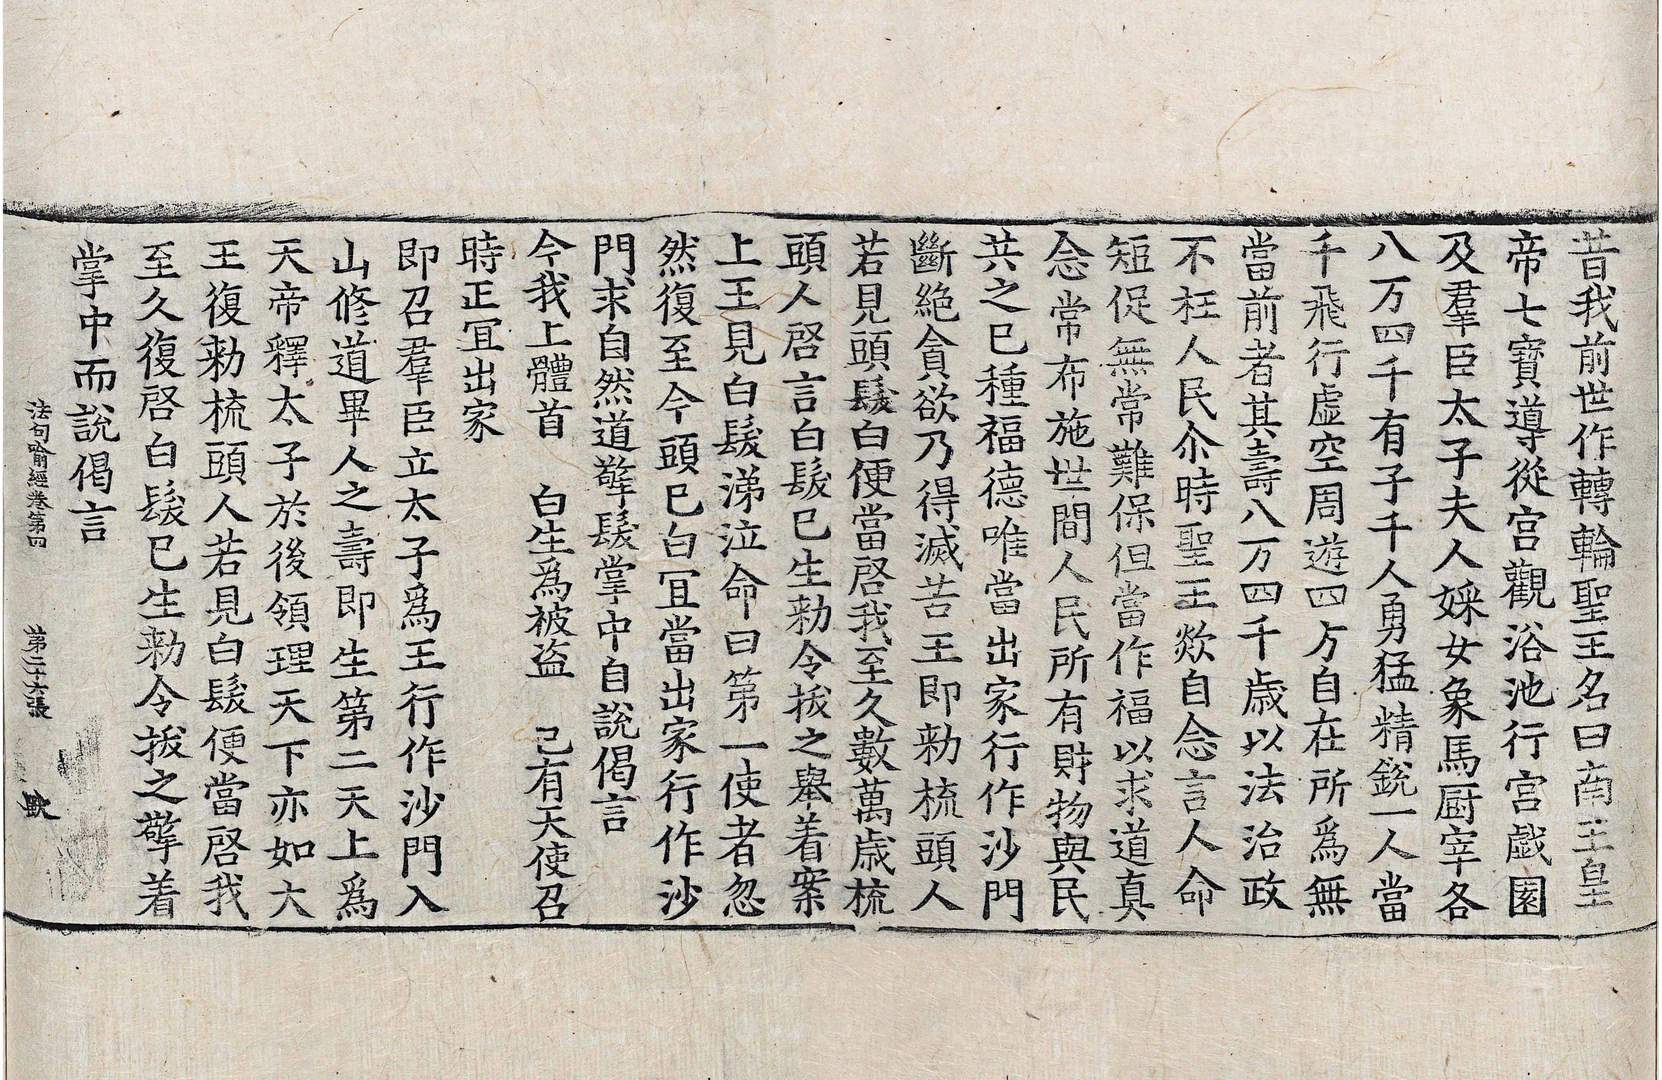 昔我前世作轉輪聖王名曰南王皇
帝七寶導從宮觀浴池行宮戯園
及羣臣太子夫人婇女象馬厨宰各
八万四千有子千人勇猛精銳一人當
千飛行虚空周遊四方自在所爲無
當前者其壽八万四千歳以法治政
不枉人民尒時聖王欻自念言人命
短促無常難保但當作福以求道真
念常布施世間人民所有財物與民
共之已種福德唯當出家行作沙門
斷絶貪欲乃得滅苦王即勑梳頭人
若見頭髮白便當啓我至久數萬歳梳
頭人啓言白髮已生勑令拔之舉着案
上王見白髮涕泣命曰第一使者忽
然復至今頭已白冝當出家行作沙
門求自然道擎髮掌中自說偈言
今我上體首 白生爲被盜 已有天使召
時正冝出家
即召羣臣立太子爲王行作沙門入
山修道畢人之壽即生第二天上爲
天帝釋太子於後領理天下亦如大
王復勑梳頭人若見白髮便當啓我
至久復啓白髮已生勑令拔之擎着
掌中而說偈言
法句喻經卷第四 第二十六張 歐